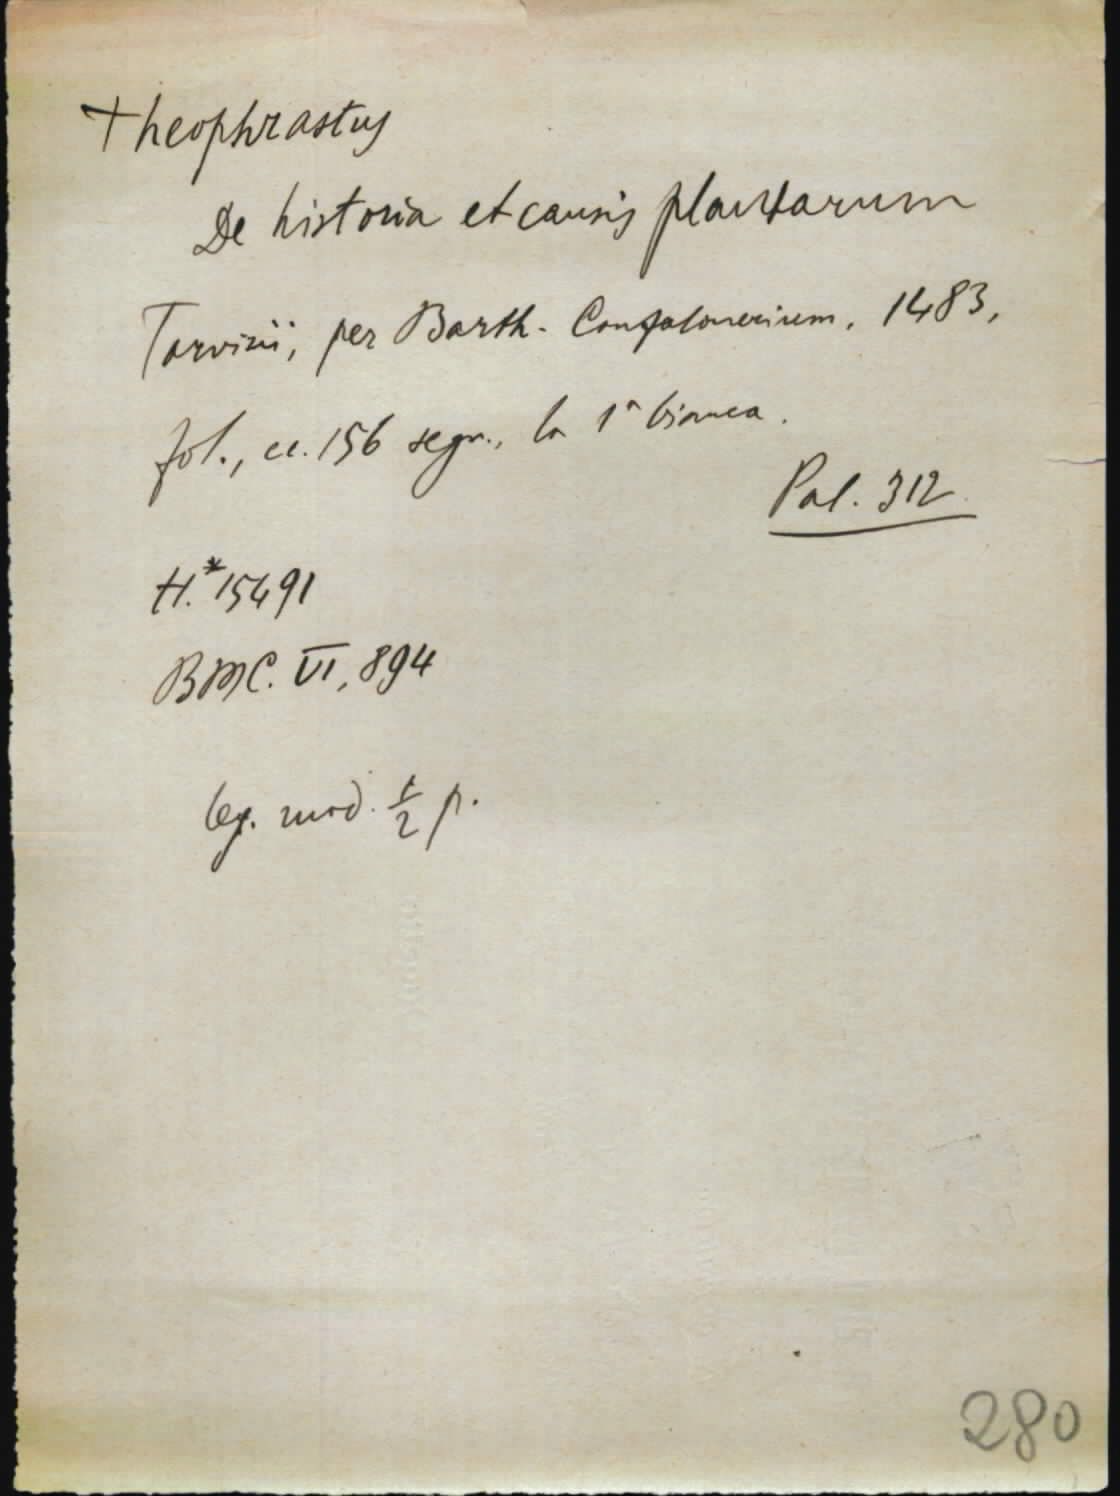 Theophrastus
De historia et causis plantarum
Tarvisii, per Barth. Confalonerium, 1483,
fol., cc. 156 segn., la 1ª bianca.
Pal. 312
H.*15491
BMC. VI, 894
leg. mod. 1/2 p.
280